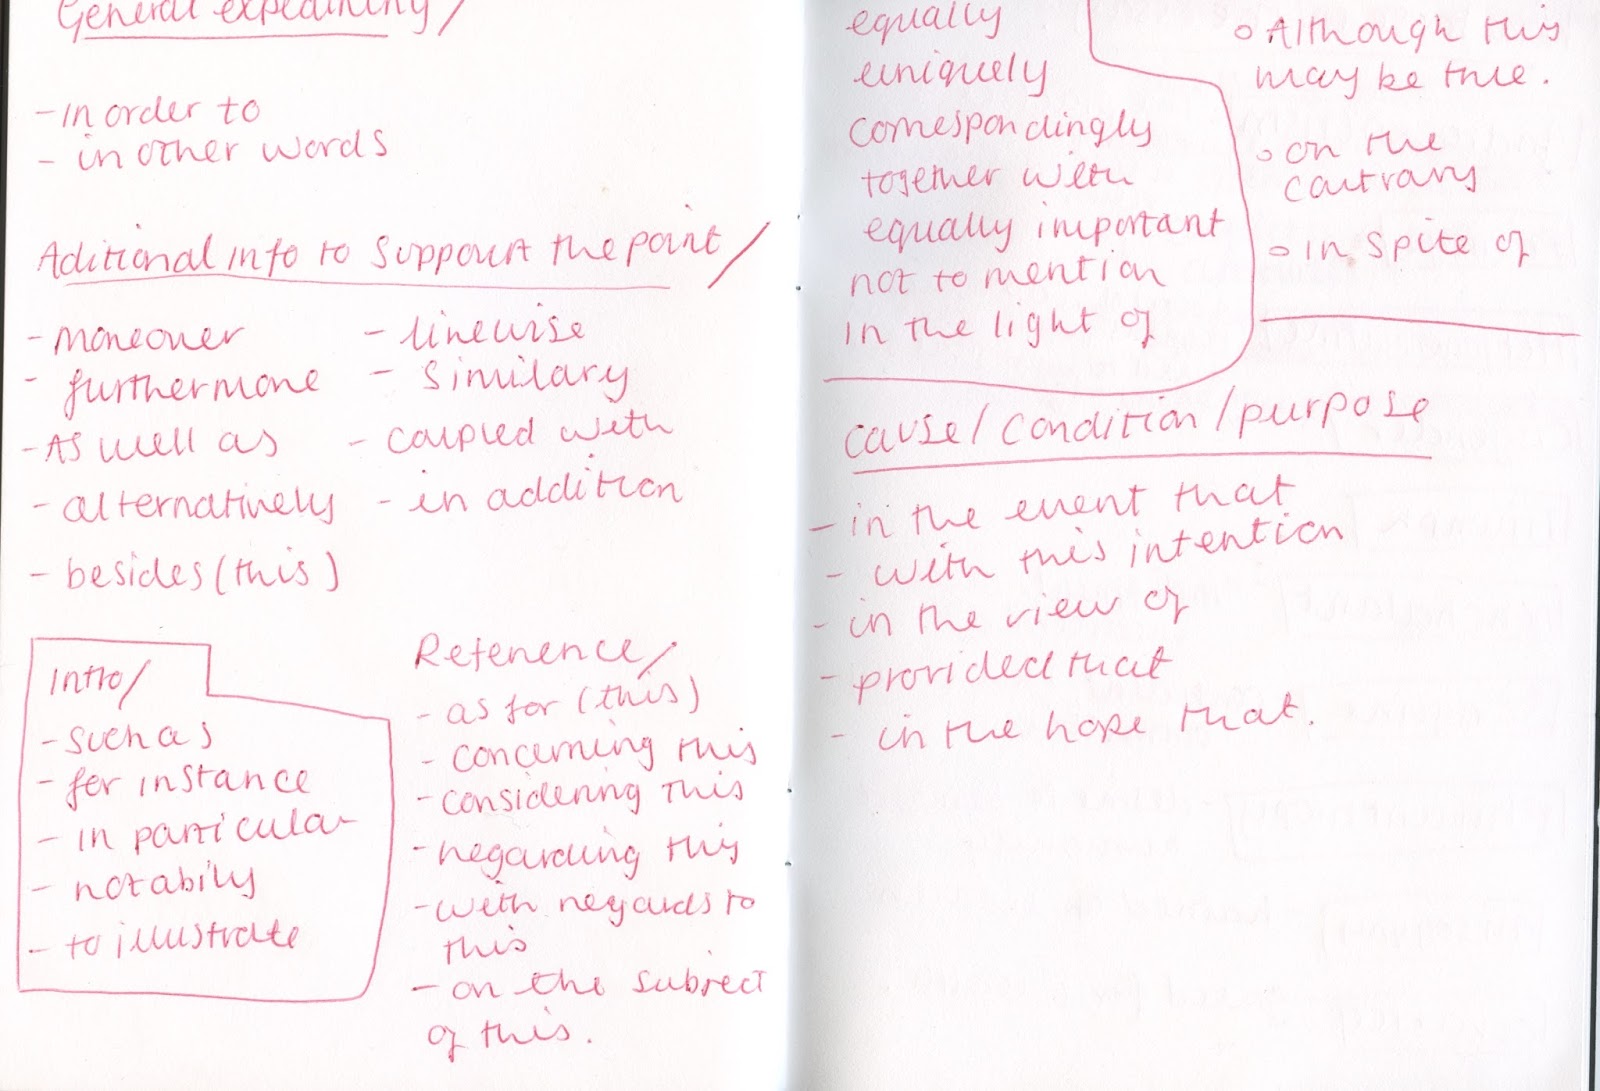 General explaining/
- in order to
- in other words
Aditional info to support the point/
- moreover
- furthermore
- As well as
- alternatively
- besides (this)
- linewise
- similary
- coupled with
- in addition
Intro/
- such as
- for instance
- in particular
- notabily
- to illustrate
Reference/
- as for (this)
- concerning this
- considering this
- regarding this
- with regards to
this
- on the subject
of this.
equally
uniquely
correspondingly
together with
equally important
not to mention
in the light of
Although this
may be true.
on the
contrary
in spite of
cause/condition/purpose
- in the event that
- with this intention
- in the view of
- provided that
- in the hope that.